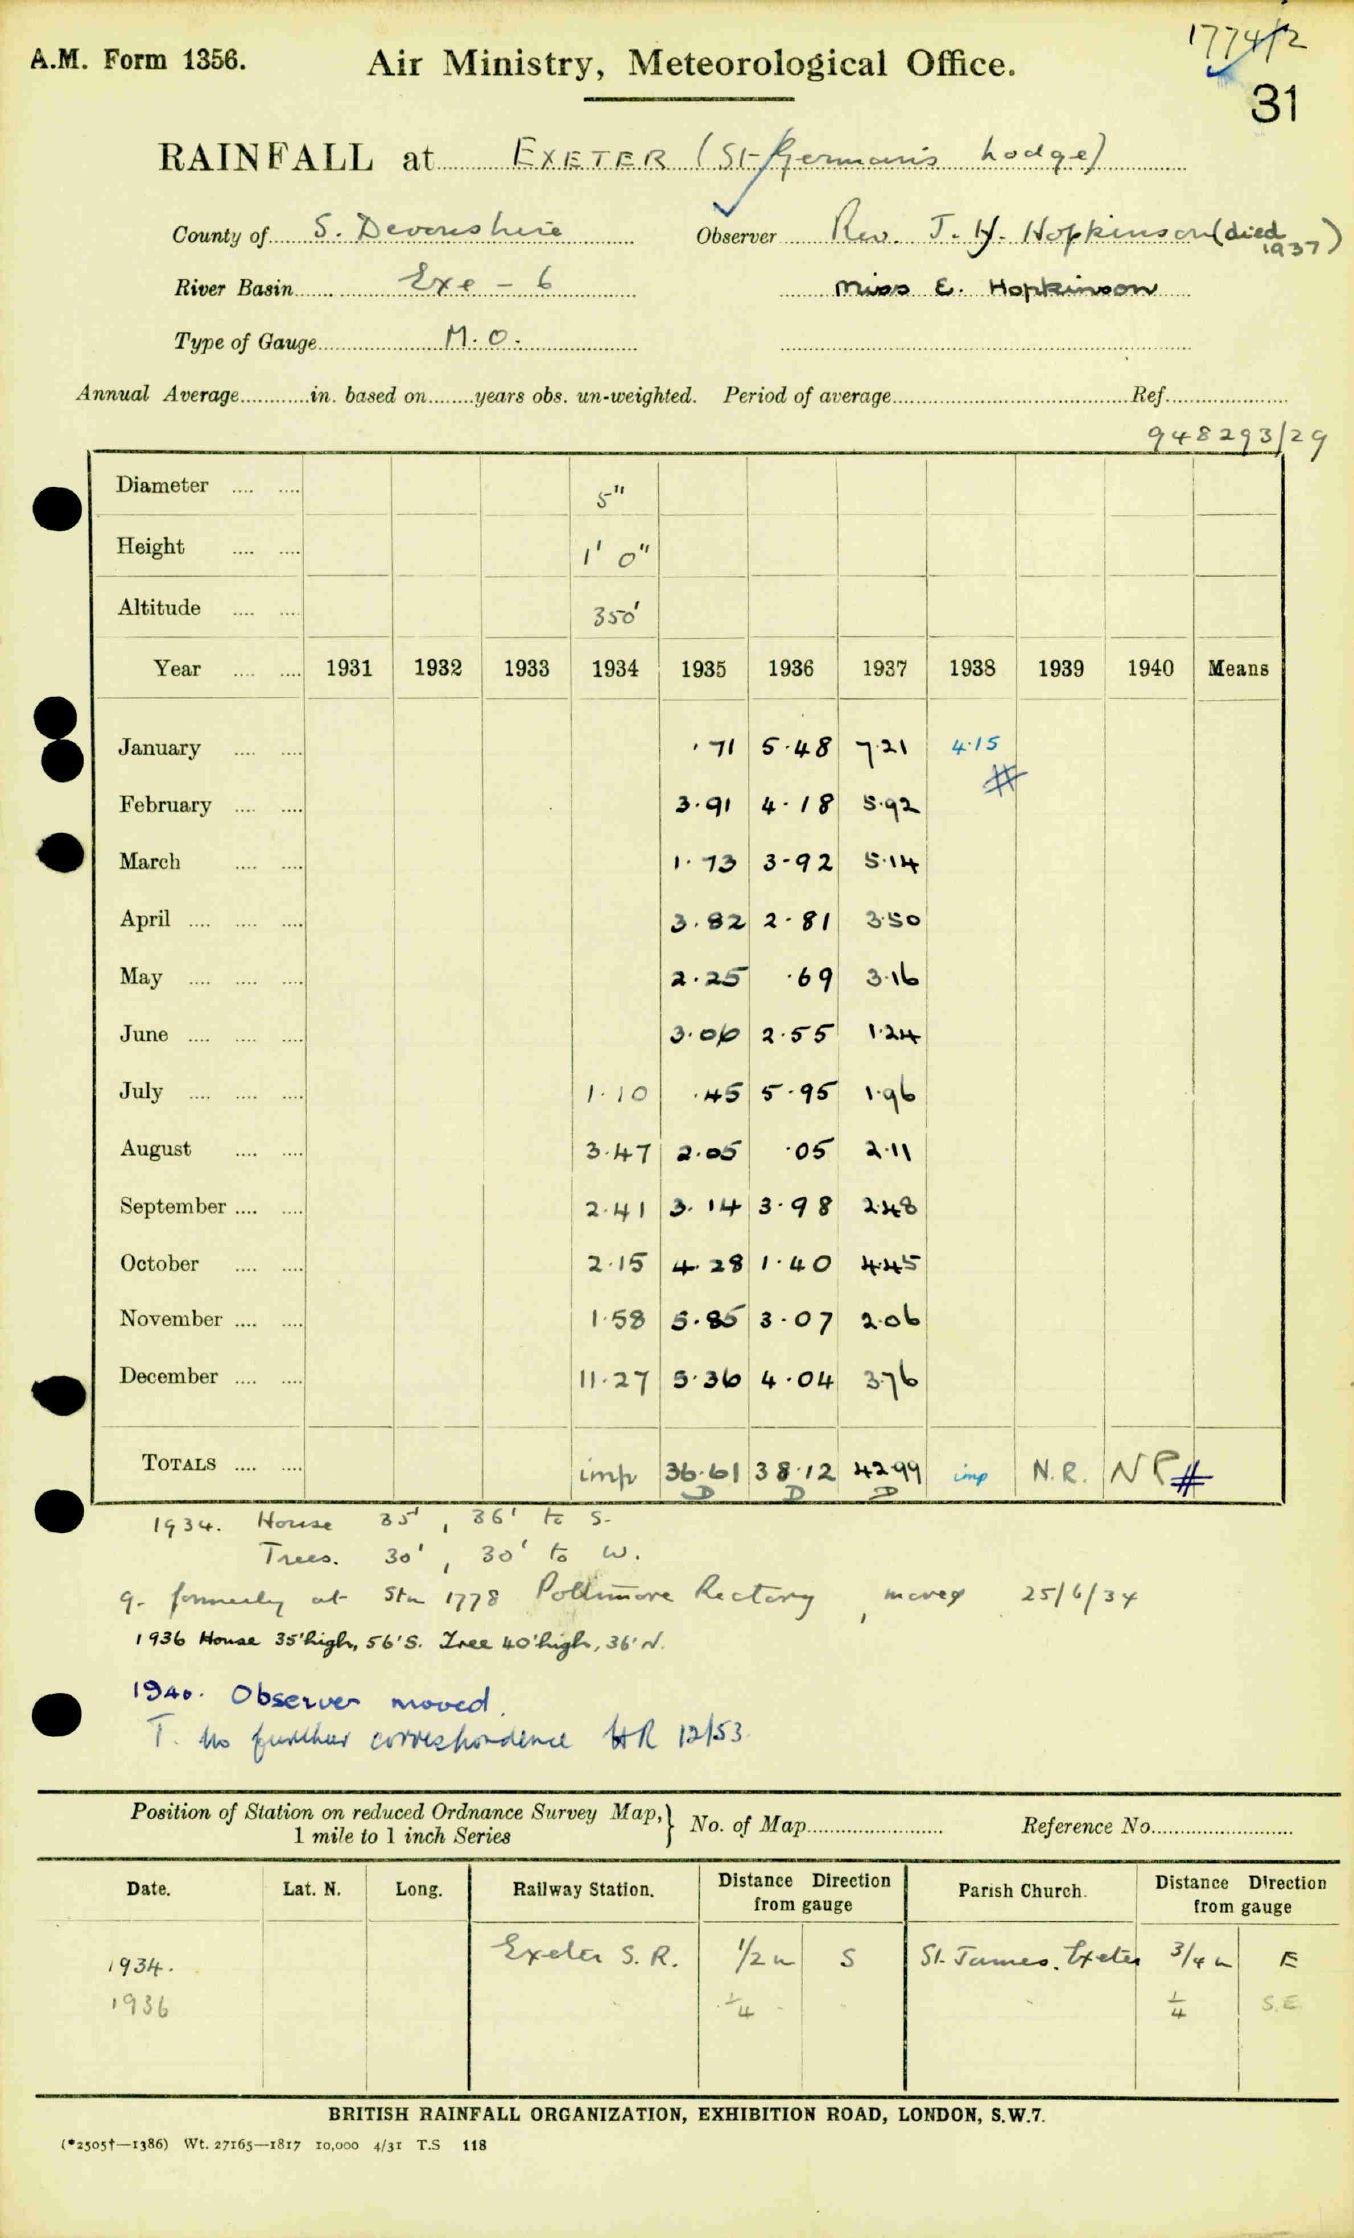 1774/2
A.M. Form 1356.
Air Ministry, Meteorological Office.
31
RAINFALL at EXETER (St Germans Lodge)
County of S. Devonshire Observer Rev. J. H. Hopkinson (died 1937)
River Basin Exe - 6 Miss E. Hopkinson
Type of Gauge M.O.
Annual Average in. based on years obs. un-weighted. Period of average Ref.
948293/29
Diameter 5"
Height 1' 0"
Altitude 350'
Year 1931 1932 1933 1934 1935 1936 1937 1938 1939 1940 Means
January .71 5.48 7.21 4.15
#
February 3.91 4.18 5.92
March 1.73 3.92 5.14
April 3.82 2.81 3.50
May 2.25 .69 3.16
June 3.06 2.55 1.24
July 1.10 .45 5.95 1.96
August 3.47 2.05 .05 2.11
September 2.41 3.14 3.98 2.48
October 2.15 4.28 1.40 4.45
November 1.58 5.85 3.07 2.06
December 11.27 5.36 4.04 3.76
TOTALS imp 36.61 38.12 42.99 imp N.R. NR #
D D D
1934. House 35', 36' to S.
Trees. 30', 30' to W.
g. formerly at Stn 1778 Poltimore Rectory, moved 25/6/34
1936 House 35' high, 56' S. Tree 40' high, 36' N.
1940. Observer moved.
T. No further correspondence HR 12/53
Position of Station on reduced Ordnance Survey Map, 1 mile to 1 inch Series } No. of Map Reference No.
Date. Lat. N. Long. Railway Station. Distance Direction from gauge Parish Church. Distance Direction from gauge
1934. Exeter S.R. 1/2 m S St. James, Exeter 3/4 m E
1936 1/4 1/4 S.E.
BRITISH RAINFALL ORGANIZATION, EXHIBITION ROAD, LONDON, S.W.7.
(*2505†—1386) Wt. 27165—1817 10,000 4/31 T.S 118